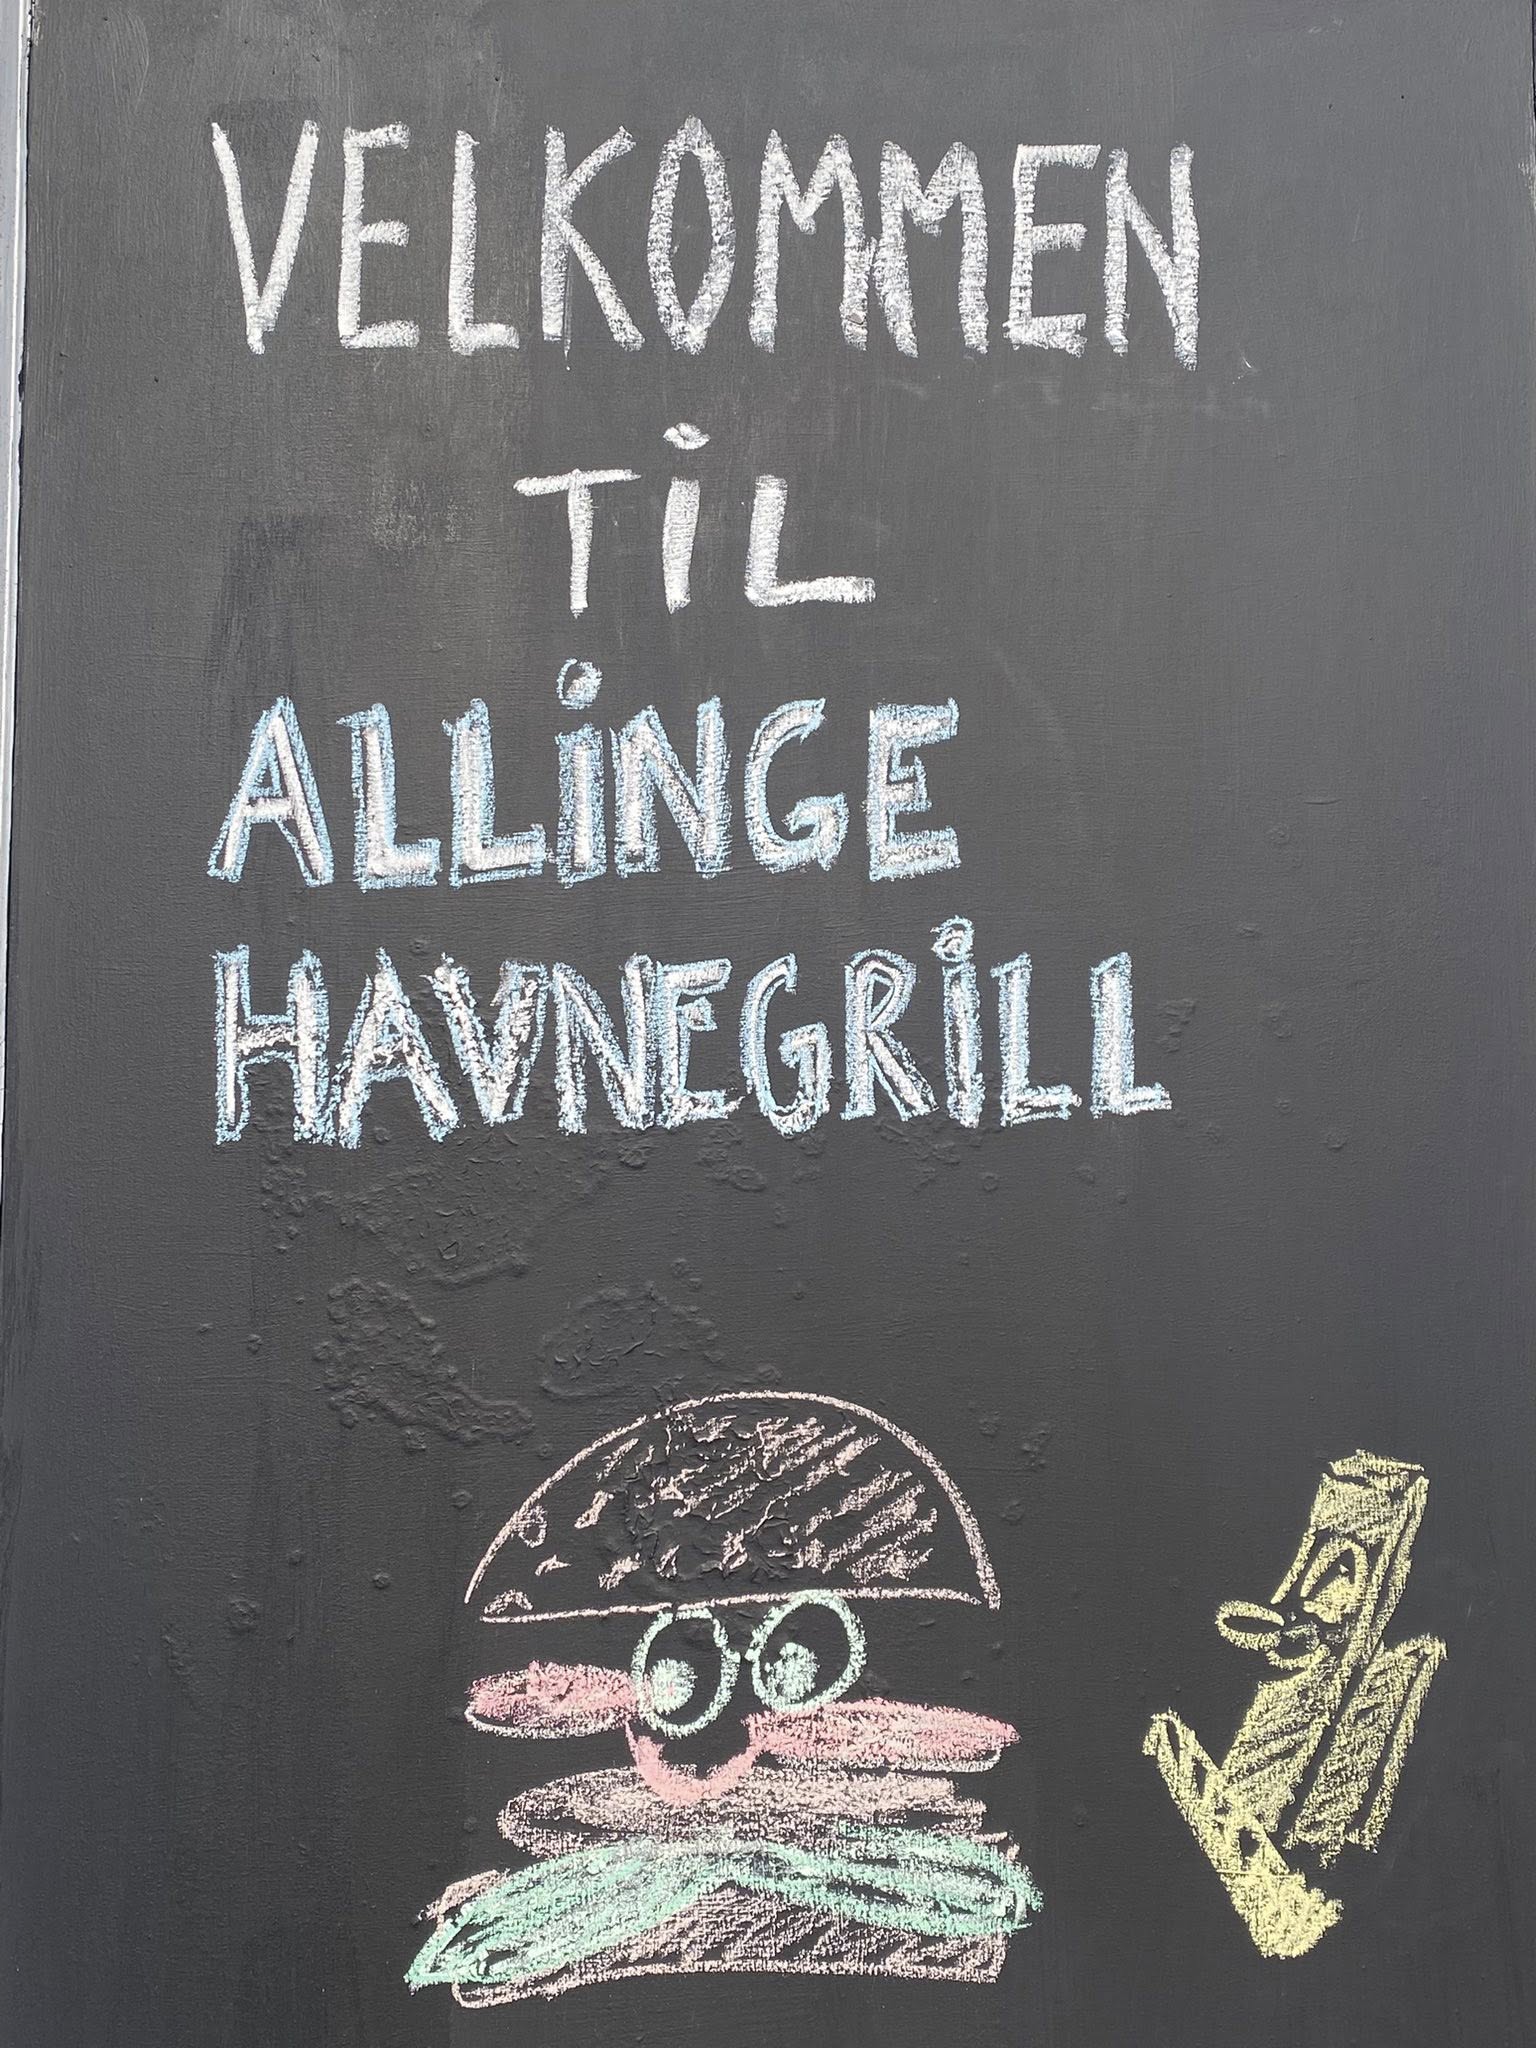 VELKOMMEN
TiL
ALLiNGE
HAVNEGRiLL